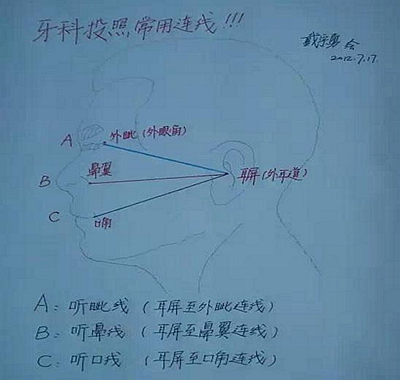 牙科投照常用连线!!!
绘
2012.7.17
A
外眦(外眼角)
鼻翼
B
耳屏(外耳道)
C
口角
A: 听眦线 (耳屏至外眦连线)
B: 听鼻线 (耳屏至鼻翼连线)
C: 听口线 (耳屏至口角连线)